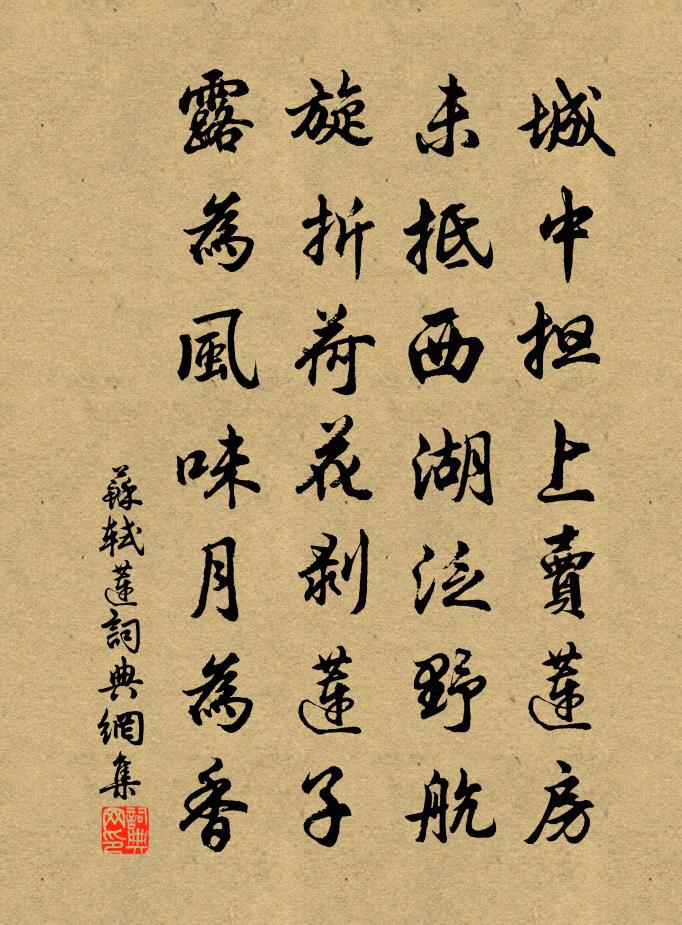 城中担上賣蓮房
未抵西湖泛野航
旋折荷花剥蓮子
露為風味月為香
蘇軾蓮詞典網集
詞典網印